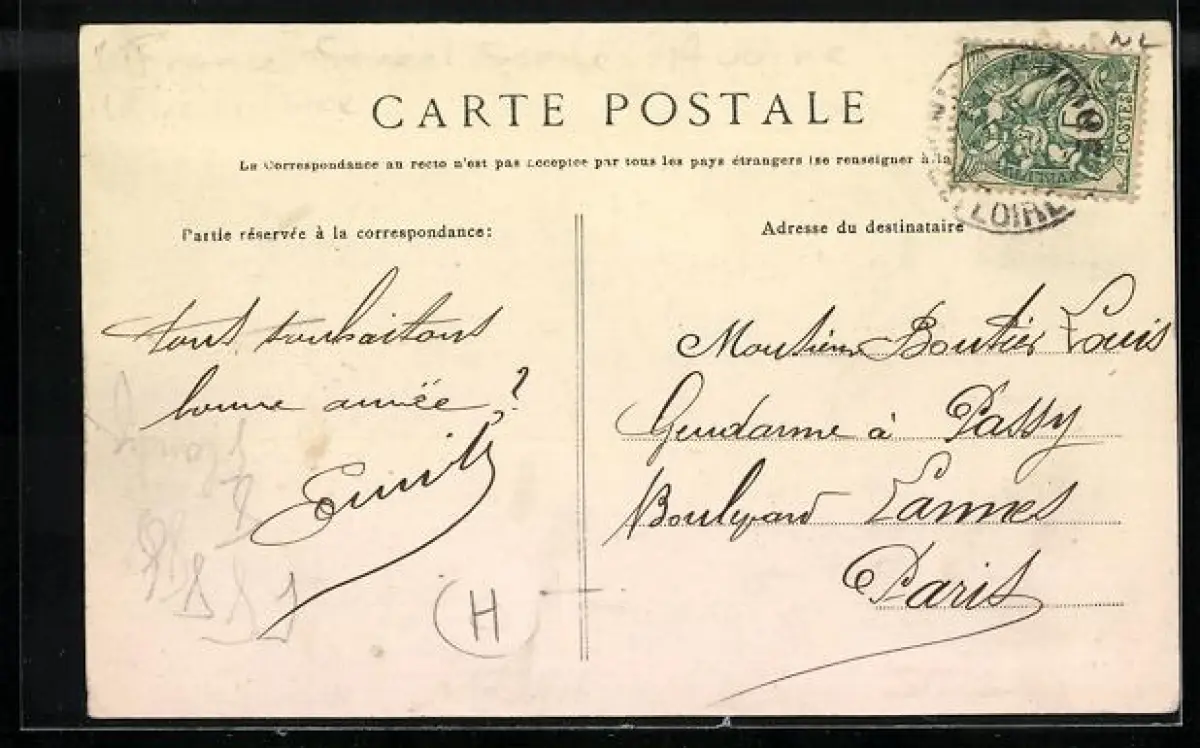 CARTE POSTALE
La Correspondance au recto n'est pas acceptée par tous les pays étrangers (se renseigner à la
Partie réservée à la correspondance:
Adresse du destinataire
5
POSTES
LOIRE
tous souhaitons
bonne année ?
Emile
H
Monsieur Boutier Louis
Gendarme à Passy
Boulevard Lannes
Paris